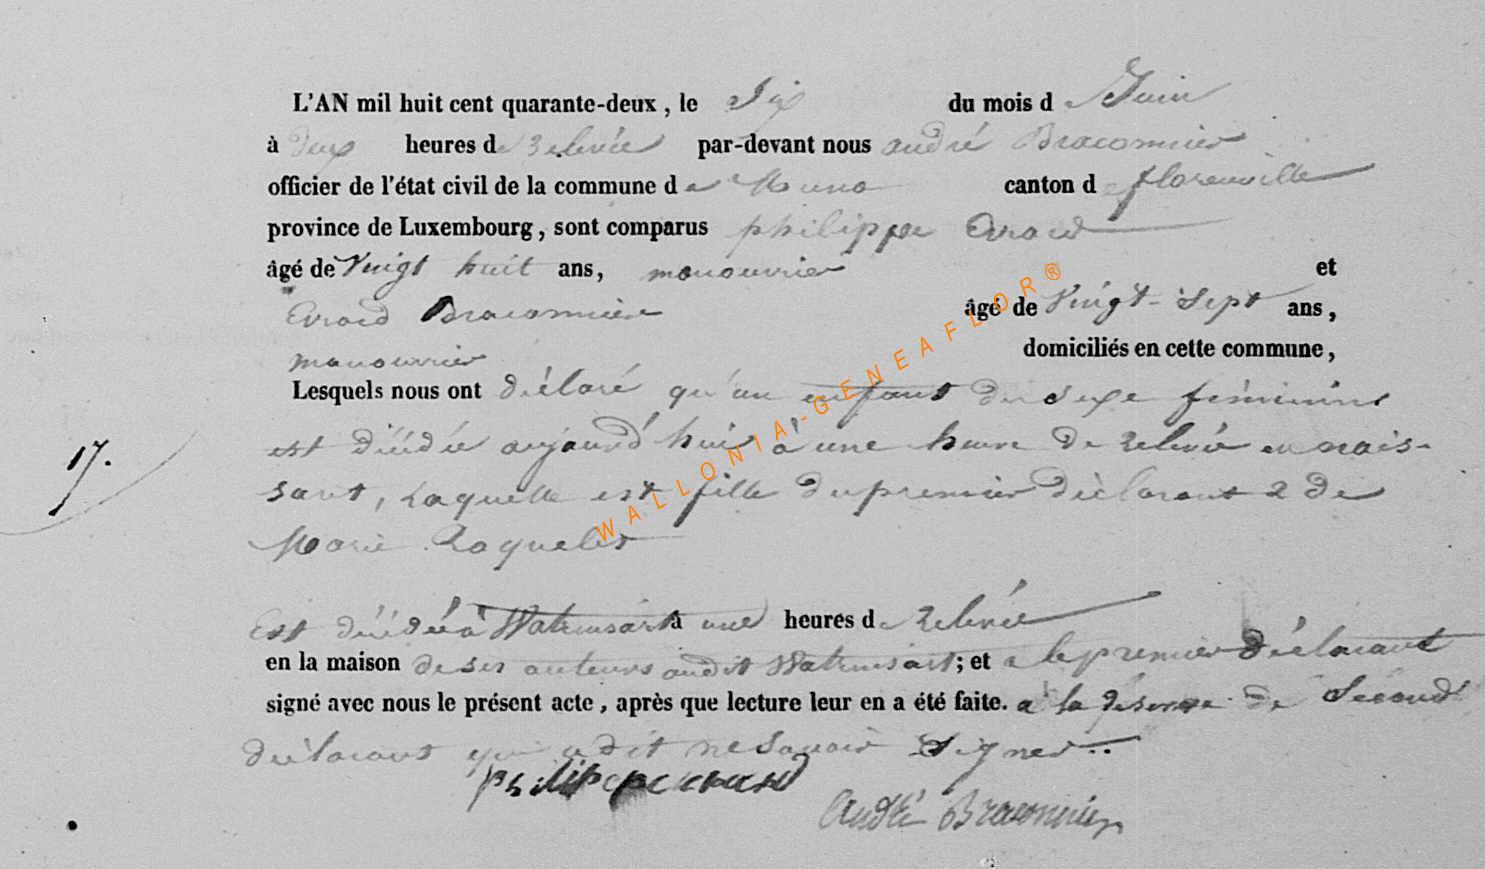 L'AN mil huit cent quarante-deux, le Six du mois de Juin
à deux heures de relevée par-devant nous andré Braconnier
officier de l'état civil de la commune de Muno canton de florenville
province de Luxembourg, sont comparus philippe Evrard
âgé de Vingt huit ans, manouvrier et
Evrard Braconnier âgé de Vingt-Sept ans,
manouvrier domiciliés en cette commune,
Lesquels nous ont déclaré qu'un enfant du Sexe féminin
est décédée aujourd'hui à une heure de relevée en nais-
17.
sant, Laquelle est fille du premier déclarant & de
Marie Roquelet
Est décédée à Watrinsart à une heures de Relevée
en la maison de ses auteurs audit Watrinsart; et a le premier déclarant
signé avec nous le présent acte, après que lecture leur en a été faite. a la réserve de Second
déclarant qui a dit ne Savoir Signer..
philippe evrard
André Braconnier
WALLONIA-GENEAFLOR®